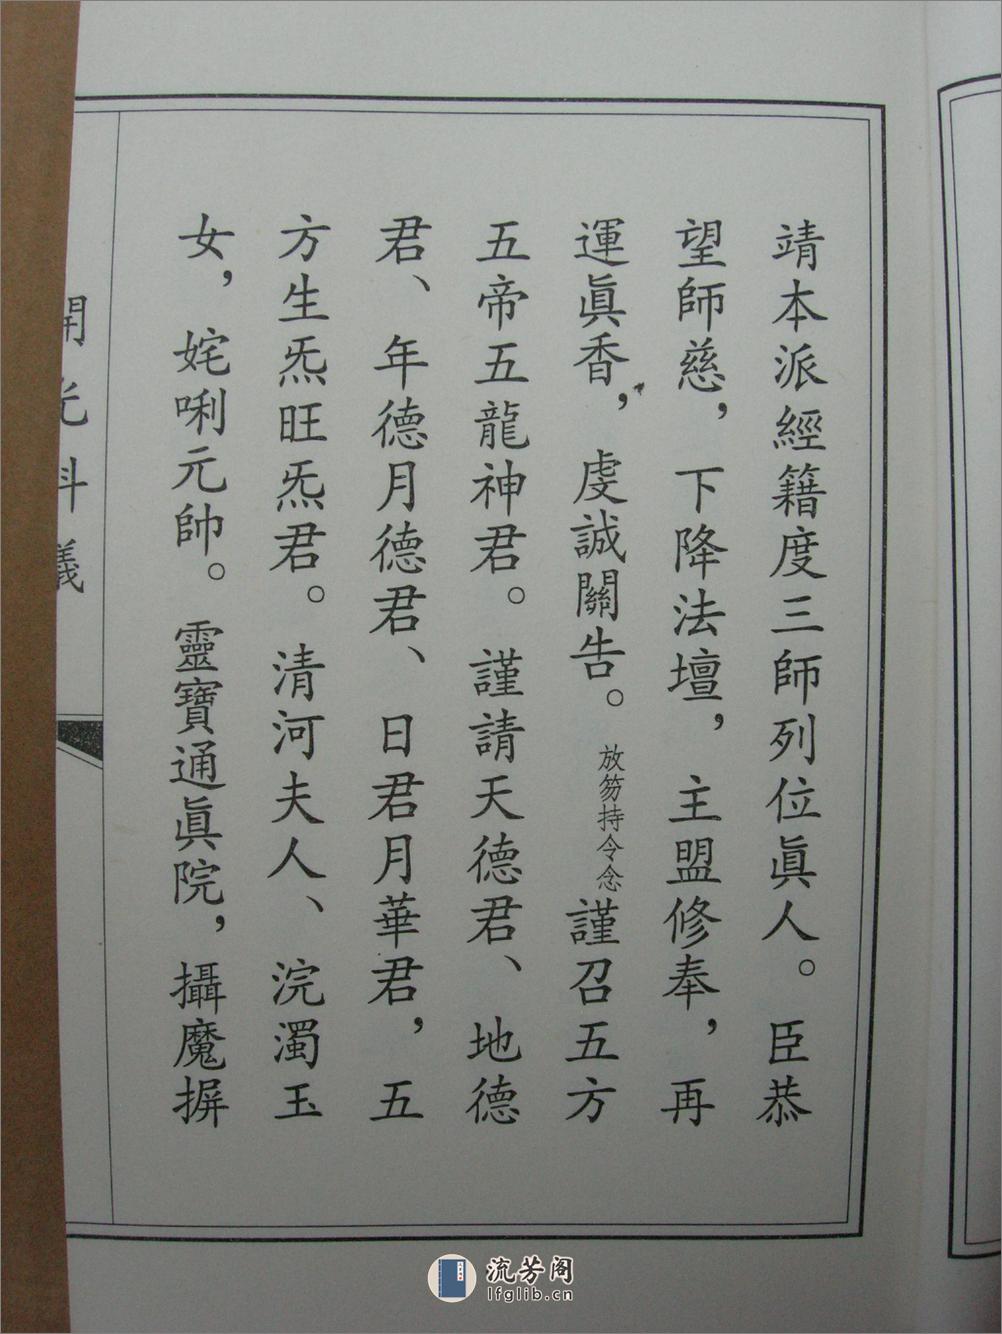 靖本派經籍度三師列位眞人。臣恭
望師慈，下降法壇，主盟修奉，再
運眞香，虔誠關告。放笏持令念謹召五方
五帝五龍神君。謹請天德君、地德
君、年德月德君、日君月華君，五
方生炁旺炁君。清河夫人、浣濁玉
女，姹唎元帥。靈寶通眞院，攝魔摒
開光科儀
流芳阁
lfglib.cn